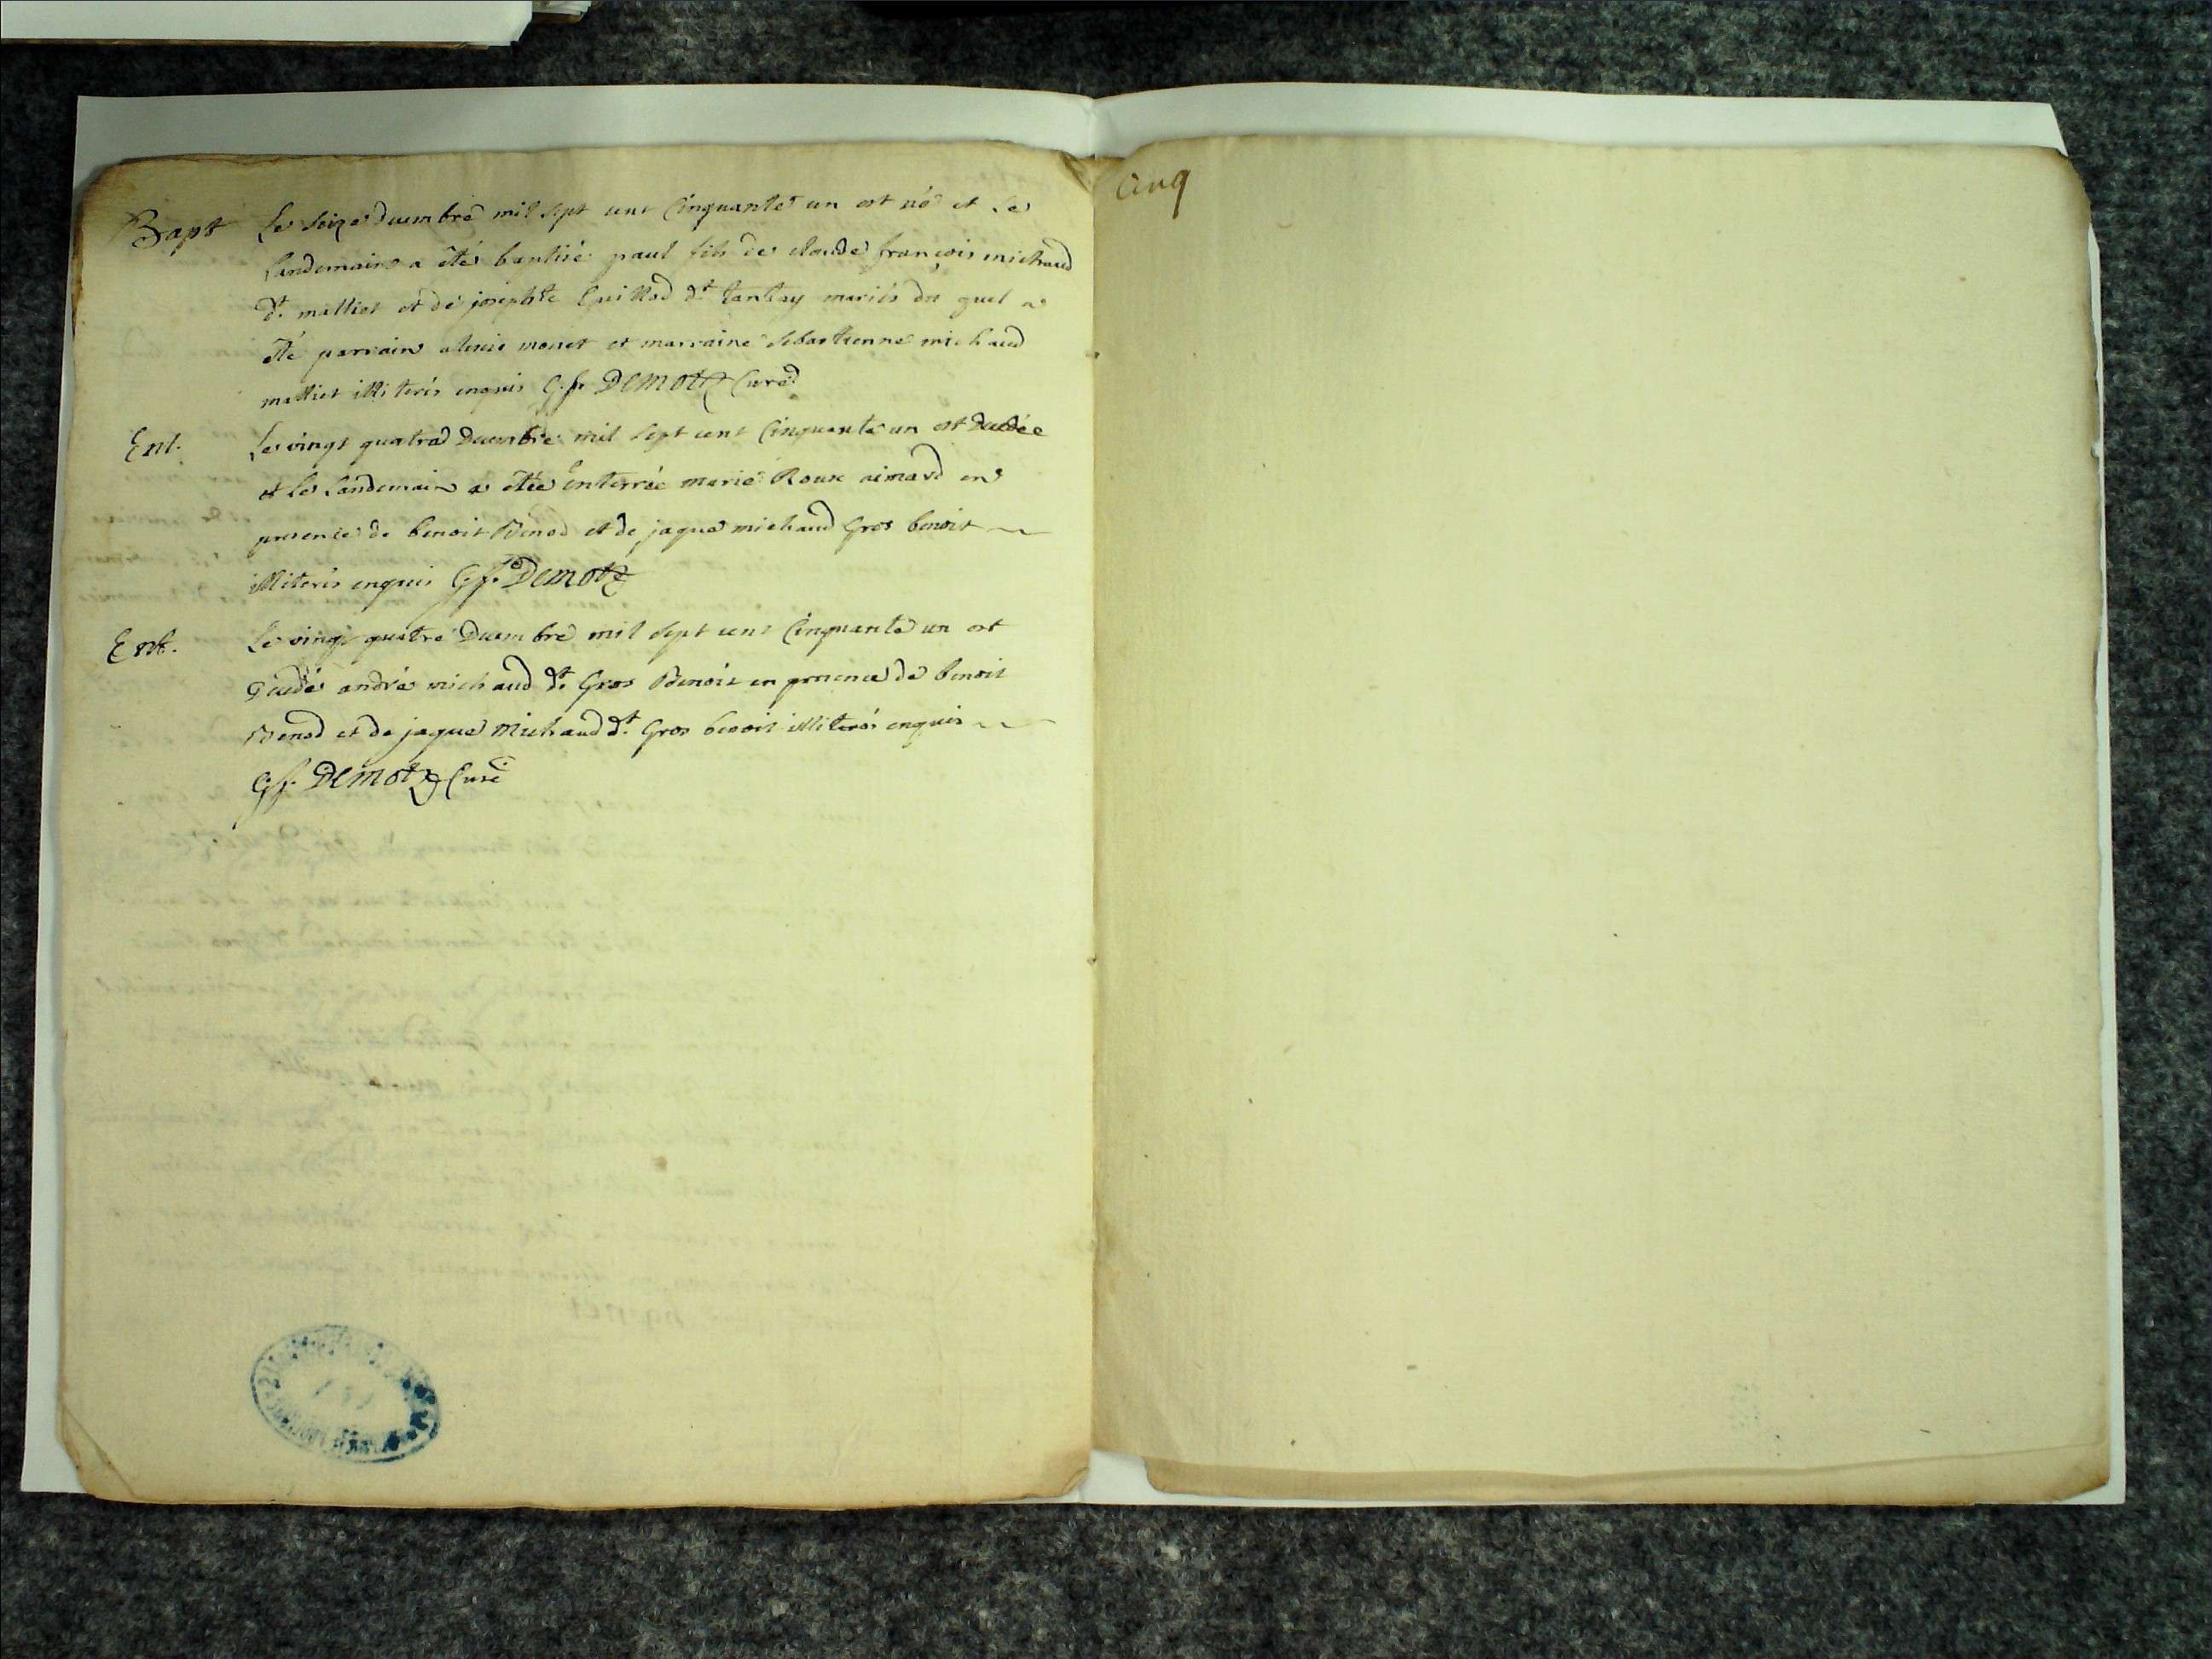 Bapt Le seize decembre mil sept cent cinquante un est né et le
landemain a été bautisé paul fils de claude françois michaud
dt. malliet et de josephte Cuillod dt tantay mariés du quel a
été parrain alexis monet et marraine sebastienne michaud
malliet illiterés enquis C. f. DEMOTZ Curé
Ent. Le vingt quatre Decembre mil sept cent Cinquante un est decedée
et le landemain a étée enterrée marie Roux aimard en
presence de benoit Benod et de jaque michaud Gros benoit
illiterés enquis C. f. DEMOTZ
Ent. Le vingt quatre Decembre mil sept cent Cinquante un est
Decedé andré michaud dt. Gros Benoit en presence de benoit
Benod et de jaque Michaud dt. Gros benoit illiterés enquis
C. f. DEMOTZ Curé
Cinq